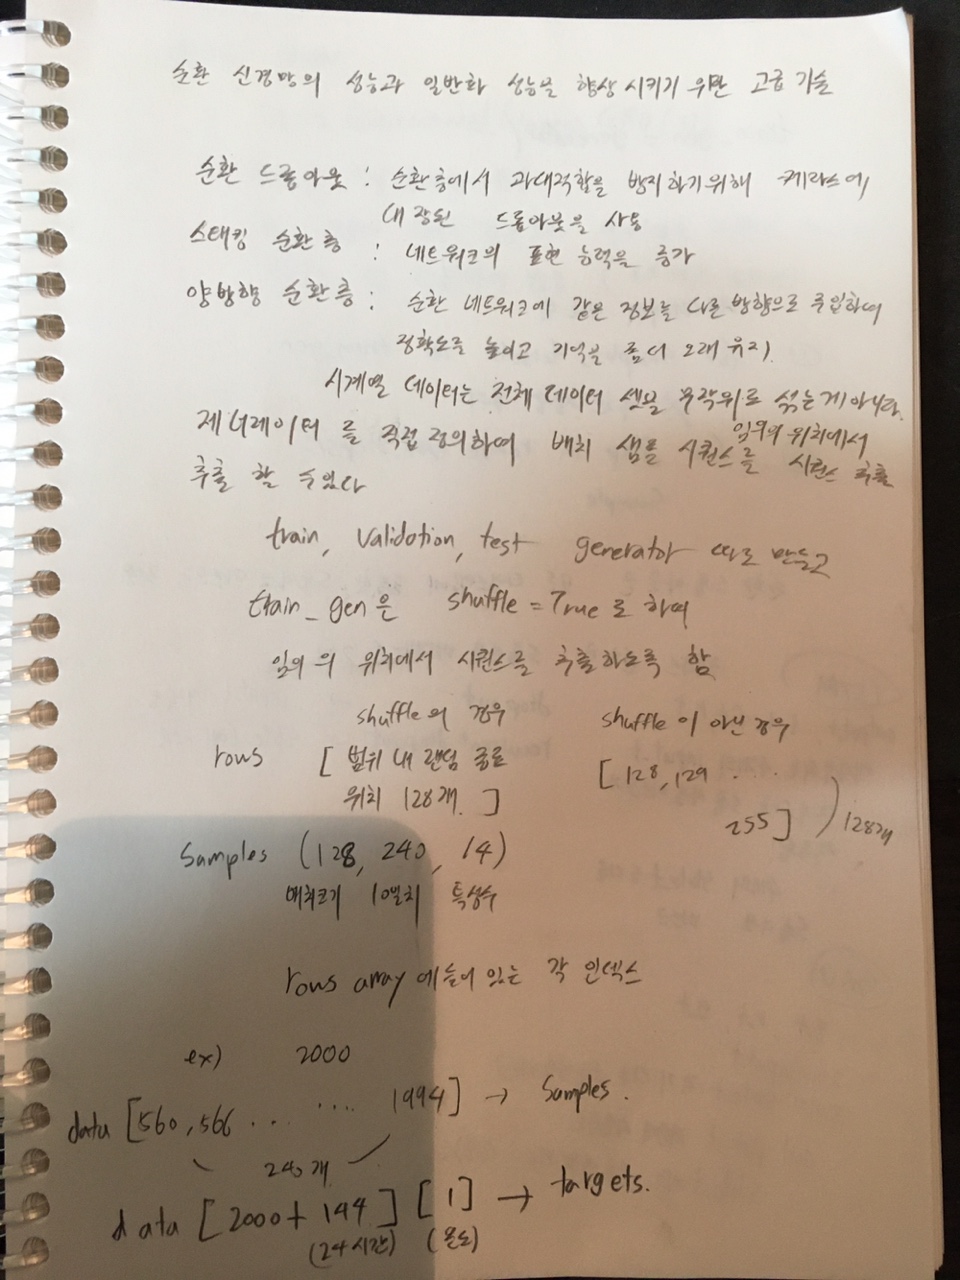 순환 신경망의 성능과 일반화 성능을 향상 시키기 위한 고급 기술
순환 드롭아웃 : 순환층에서 과대적합을 방지하기위해 케라스에
내장된 드롭아웃을 사용
스태킹 순환층 : 네트워크의 표현 능력을 증가
양방향 순환층 : 순환 네트워크에 같은 정보를 다른 방향으로 주입하여
정확도를 높이고 기억을 좀더 오래 유지.
시계열 데이터는 전체 데이터 셋을 무작위로 섞는게아니다.
제너레이터를 직접 정의하여 배치 샘플 시퀀스를 임의의 위치에서 시퀀스 추출
추출 할 수있다
train, validation, test generator 따로 만들고
train_gen은 shuffle = True로 하여
임의의 위치에서 시퀀스를 추출하도록 함
shuffle의 경우 shuffle이 아닌 경우
rows [ 범위 내 랜덤 종료 [ 128, 129 ....
위치 128개 ] 255 ] 128개
Samples (128, 240, 14)
배치크기 10일치 특성수
rows array에 들어 있는 각 인덱스
ex) 2000
data [560, 566 ... .... 1994] → Samples.
240개
data [2000 + 144] [1] → targets.
(24시간) (온도)